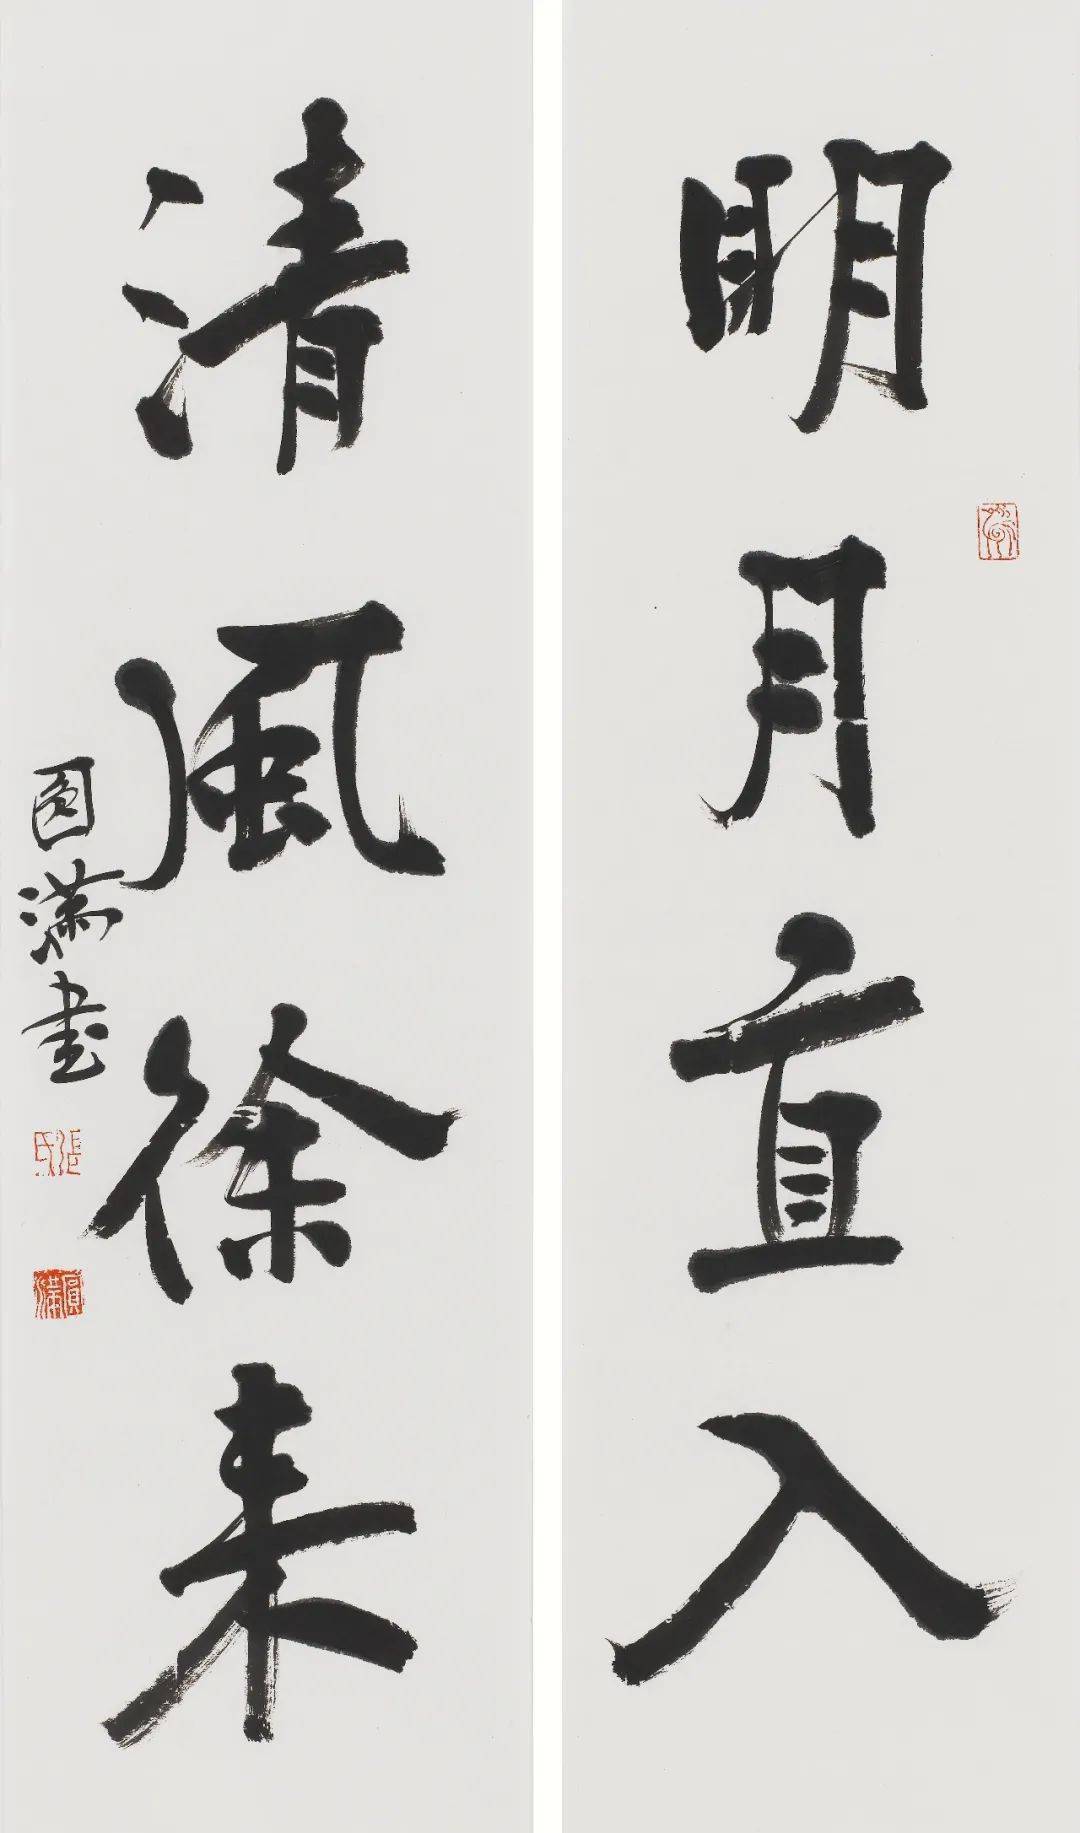 明月直入
清風徐来
圆满书
張氏
圓滿